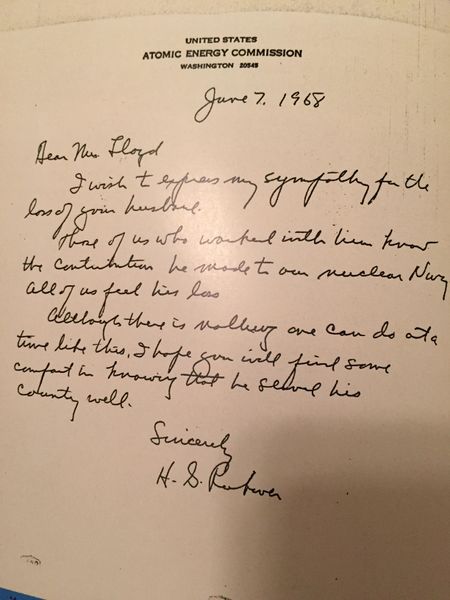 UNITED STATES
ATOMIC ENERGY COMMISSION
WASHINGTON 20545
June 7, 1968
Dear Mrs Lloyd
I wish to express my sympathy for the
loss of your husband.
Those of us who worked with him know
the contribution he made to our nuclear Navy
All of us feel his loss
Although there is nothing one can do at a
time like this, I hope you will find some
comfort in knowing that he served his
country well.
Sincerely
H. G. Rickover